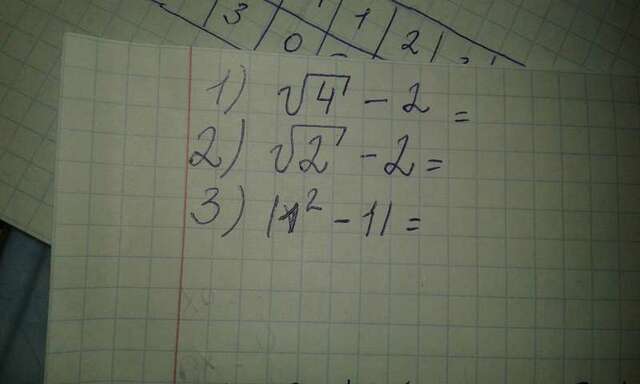 1) √4 - 2 =
2) √2 - 2 =
3) |x² - 1| =
3 | 0 | 1 | 2 |